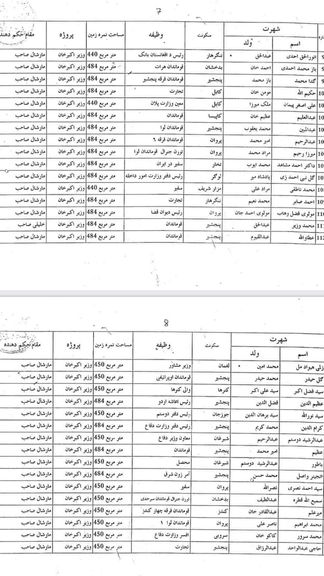 7
شهرت
اسم ولد سکونت وظیفه مساحت نمره زمین پروژه مقام حکم دهنده
نورالحق احدی عبدالحق ننگرهار رئیس د افغانستان بانک 440 متر مربع وزیر اکبرخان مارشال صاحب
باز محمد احمدی احمد خان بدخشان قوماندان هرات 484 متر مربع وزیر اکبرخان مارشال صاحب
گدا محمد باز محمد پنجشیر قوماندان فرقه پنجشیر 484 متر مربع وزیر اکبرخان مارشال صاحب
حکیم الله مومن خان کابل تجارت 484 متر مربع وزیر اکبرخان مارشال صاحب
علی اصغر پیمان ملک میرزا کابل معین وزارت پلان 440 متر مربع وزیر اکبرخان مارشال صاحب
عبدالعلیم عظیم خان کاپیسا قوماندان 484 متر مربع وزیر اکبرخان مارشال صاحب
محمد یعقوب پنجشیر قوماندان لوا 484 متر مربع وزیر اکبرخان مارشال صاحب
عبدالرحیم میر محمد پروان قوماندان فرقه 484 متر مربع وزیر اکبرخان مارشال صاحب
میرزا رحیم مراد محمد پروان تورن جنرال قوماندان لوا 484 متر مربع وزیر اکبرخان مارشال صاحب
داکتر احمد مشاهد محمد ایوب تخار سفیر در ایران 484 متر مربع وزیر اکبرخان مارشال صاحب
گل نبی احمد زی پادشاه میر لوگر رئیس دفتر وزارت امور داخله 484 متر مربع وزیر اکبرخان مارشال صاحب
محمد ناطقی مراد علی مزار شریف سفیر 440 متر مربع وزیر اکبرخان مارشال صاحب
احمد صابر محمد نعیم ننگرهار تجارت 484 متر مربع وزیر اکبرخان مارشال صاحب
مولوی فضل وهاب مولوی احمد جان پروان رئیس دیوان قضا 484 متر مربع وزیر اکبرخان مارشال صاحب
محمد وزیر عبدالحق پنجشیر قوماندان 484 متر مربع وزیر اکبرخان خلیلی صاحب
عبدالقیوم پنجشیر قوماندان 484 متر مربع وزیر اکبرخان مارشال صاحب
8
شهرت
اسم ولد سکونت وظیفه مساحت نمره زمین پروژه مقام حکم دهنده
زلی هیواد مل محمد امین لغمان وزیر مشاور 450 متر مربع وزیر اکبرخان مارشال صاحب
گل حیدر محمد حیدر پنجشیر قوماندان 450 متر مربع وزیر اکبرخان مارشال صاحب
سید فضل اکبر سید علی اکبر کنرها والی کنرها 450 متر مربع وزیر اکبرخان مارشال صاحب
عظیم الدین فضل الدین پنجشیر رئیس اردو 450 متر مربع وزیر اکبرخان مارشال صاحب
سید نورالله سید برهان الدین جوزجان رئیس دفتر دوستم 450 متر مربع وزیر اکبرخان مارشال صاحب
کرام الدین محمد کریم پنجشیر رئیس دفتر وزارت دفاع 484 متر مربع وزیر اکبرخان مارشال صاحب
عبدالرشید دوستم عبدالرحیم شبرغان معاون وزیر دفاع 450 متر مربع وزیر اکبرخان مارشال صاحب
عظیم میر محمد پنجشیر قوماندان 484 متر مربع وزیر اکبرخان مارشال صاحب
باطور عبدالرشید دوستم شبرغان محصل 450 متر مربع وزیر اکبرخان مارشال صاحب
انجنیر واصل محمد حسن پنجشیر آمر زون شرق 484 متر مربع وزیر اکبرخان مارشال صاحب
سید احمد نصری نصرالله پروان سفیر 450 متر مربع وزیر اکبرخان مارشال صاحب
سمیع الله قطره عبداللطیف بدخشان تورن جنرال قوماندان سرحدی 450 متر مربع وزیر اکبرخان مارشال صاحب
میرعلم عبدالقادر خان کندز قوماندان فرقه کندز 450 متر مربع وزیر اکبرخان مارشال صاحب
محمد ابراهیم ناصر علی پروان قوماندان لوا 1 450 متر مربع وزیر اکبرخان مارشال صاحب
محمد سرور کاکو خان سروبی افسر وزارت دفاع 450 متر مربع وزیر اکبرخان مارشال صاحب
حاجی عبدالواحد عبدالرزاق پنجشیر تجارت 450 متر مربع وزیر اکبرخان مارشال صاحب